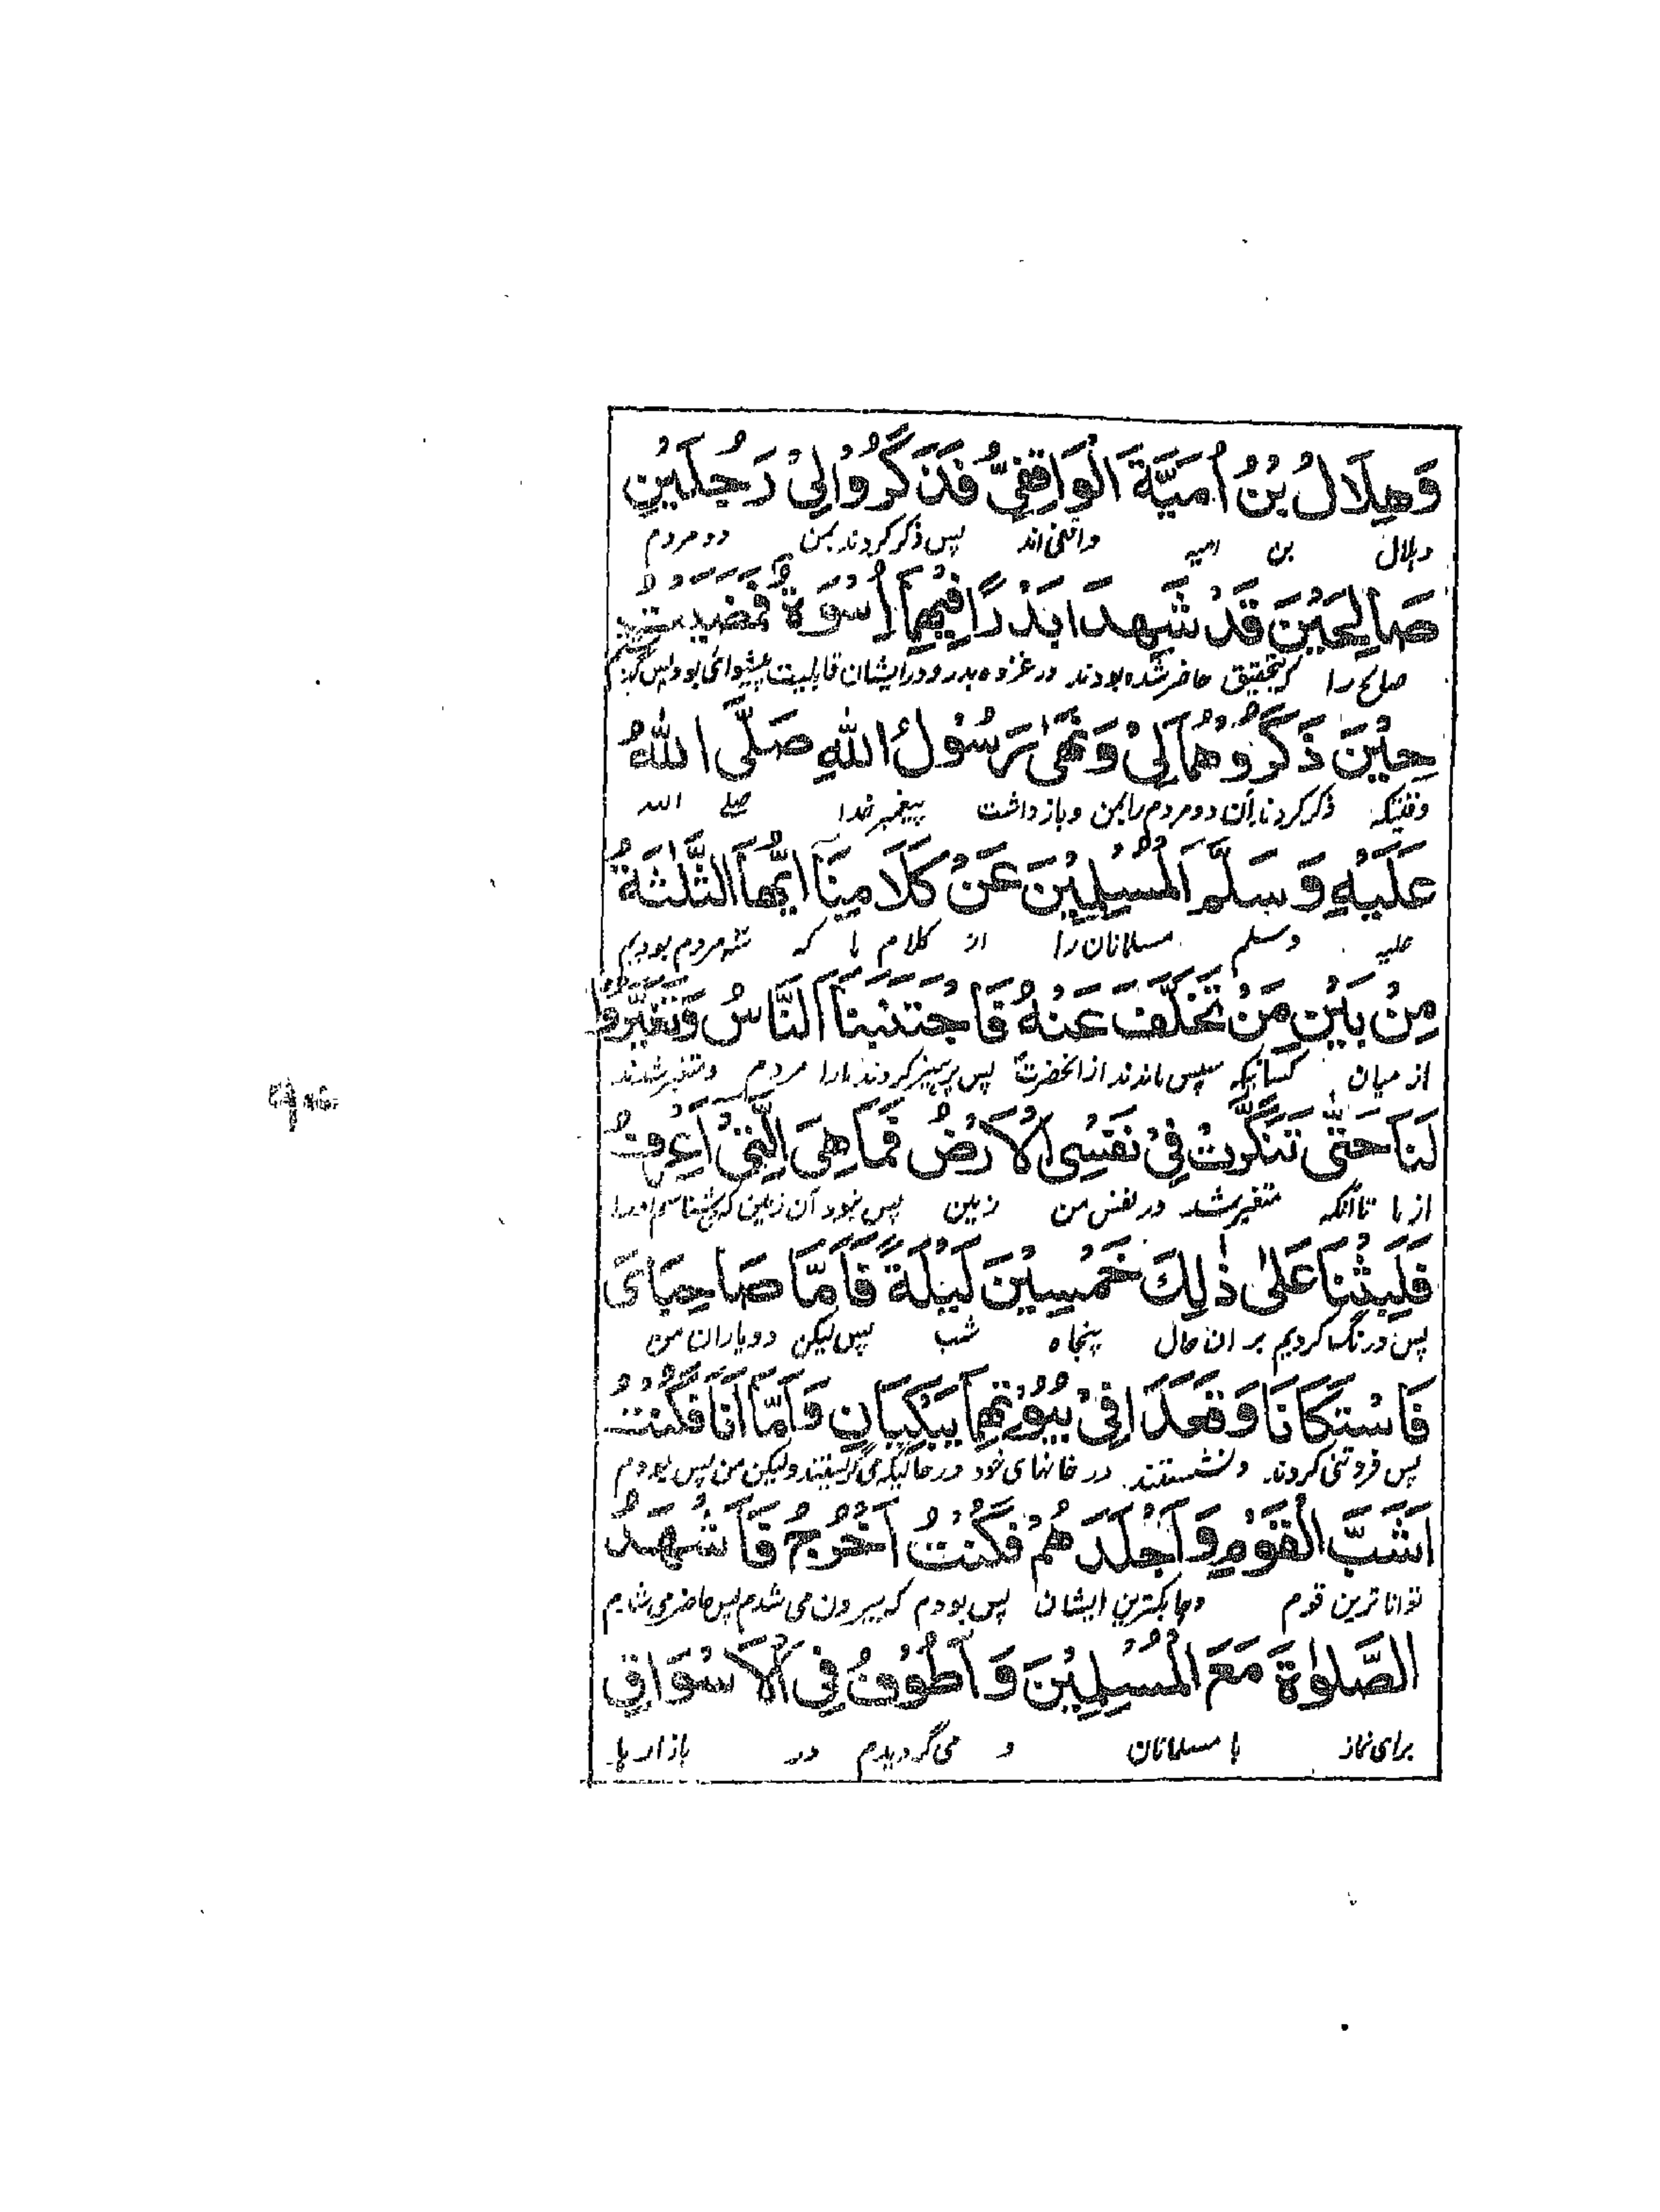 وَهِلَالُ بْنُ اُمَيَّةَ الْوَاقِفِيُّ فَذَكَرُوْا لِيْ رَجُلَيْنِ
وہلال بن امیہ واقفی اند پس ذکر کردند بمن دو مردم
صَالِحَيْنِ قَدْ شَهِدَا بَدْرًا فِيْهِمَا اُسْوَةٌ فَمَضَيْتُ
صالح را کہ بتحقیق حاضر شدہ بودند در غزوہ بدر و در ایشان قابلیت پیشوائی بود پس
حِيْنَ ذَكَرُوْهُمَا لِيْ وَنَهٰى رَسُوْلُ اللّٰهِ صَلَّى اللّٰهُ
وقتیکہ ذکر کردند آن دو مردم را بمن و باز داشت پیغمبر خدا صلے اللہ
عَلَيْهِ وَسَلَّمَ الْمُسْلِمِيْنَ عَنْ كَلَامِنَا اَيُّهَا الثَّلٰثَةُ
علیہ وسلم مسلمانان را از کلام ما کہ سہ مردم بودیم
مِنْ بَيْنِ مَنْ تَخَلَّفَ عَنْهُ فَاجْتَنَبَنَا النَّاسُ وَتَغَيَّرُوْا
از میان کسانیکہ سپس ماندند از آنحضرت پس پرہیز کردند مارا مردم و متغیر شدند
لَنَا حَتّٰى تَنَكَّرَتْ فِيْ نَفْسِى الْاَرْضُ فَمَا هِىَ الَّتِيْ اَعْرِفُ
از ما تا آنکہ متغیر شد در نفس من زمین پس نبود آن زمین کہ میشناسم اورا
فَلَبِثْنَا عَلٰى ذٰلِكَ خَمْسِيْنَ لَيْلَةً فَاَمَّا صَاحِبَاىَ
پس درنگ کردیم بر آن حال پنجاہ شب پس لیکن دو یاران من
فَاسْتَكَانَا وَقَعَدَا فِيْ بُيُوْتِهِمَا يَبْكِيَانِ وَاَمَّا اَنَا فَكُنْتُ
پس فروتنی کردند و نشستند در خانہای خود در حالیکہ می گریستند ولیکن من پس بودم
اَشَبَّ الْقَوْمِ وَاَجْلَدَهُمْ فَكُنْتُ اَخْرُجُ فَاَشْهَدُ
توانا ترین قوم و چابکترین ایشان پس بودم کہ بیرون می شدم پس حاضر می شدم
الصَّلٰوةَ مَعَ الْمُسْلِمِيْنَ وَاَطُوْفُ فِى الْاَسْوَاقِ
برای نماز با مسلمانان و می گردیدم در بازارہا